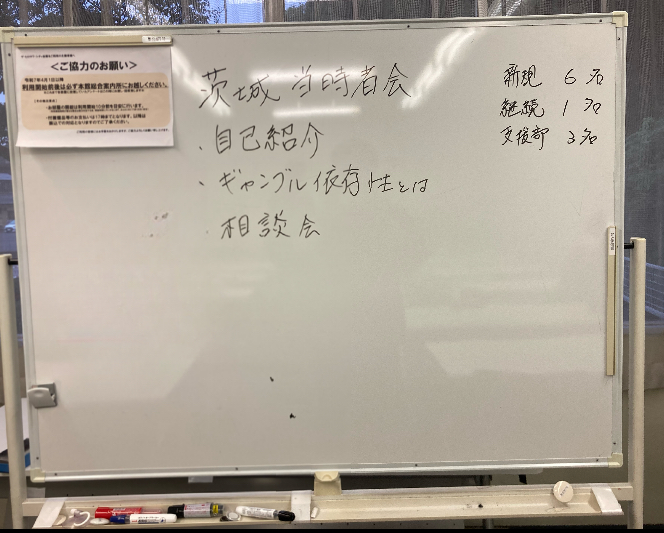 <ご協力のお願い>
令和7年4月1日以降
利用開始前後は必ず本館総合案内所にお越しください。
茨城 当時者会
・自己紹介
・ギャンブル依存性とは
・相談会
新規 6名
継続 1名
支援部 3名